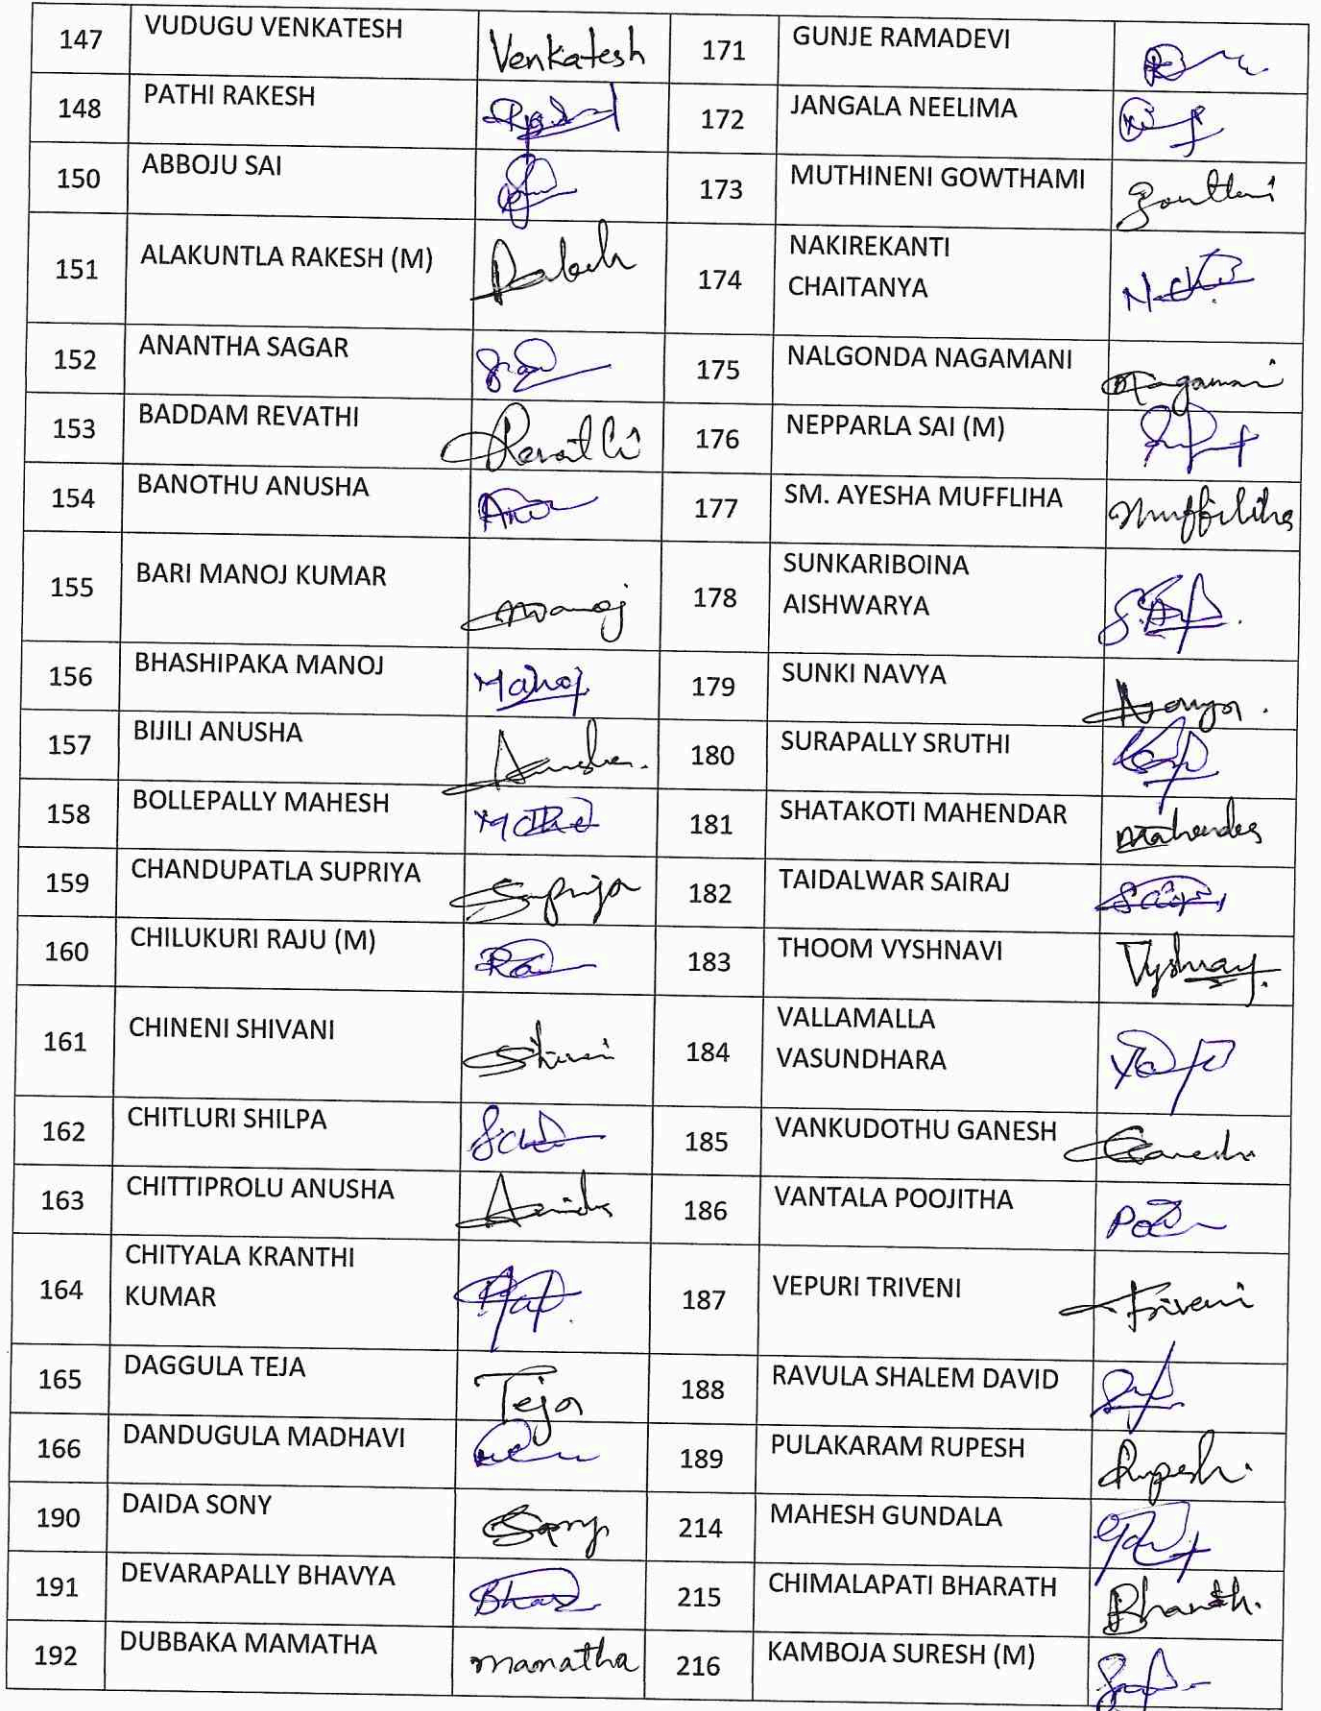 147 VUDUGU VENKATESH Venkatesh 171 GUNJE RAMADEVI
148 PATHI RAKESH 172 JANGALA NEELIMA
150 ABBOJU SAI 173 MUTHINENI GOWTHAMI
151 ALAKUNTLA RAKESH (M) 174 NAKIREKANTI
CHAITANYA
152 ANANTHA SAGAR 175 NALGONDA NAGAMANI Nagamani
153 BADDAM REVATHI Revathi 176 NEPPARLA SAI (M)
154 BANOTHU ANUSHA 177 SM. AYESHA MUFFLIHA Muffiliha
155 BARI MANOJ KUMAR Manoj 178 SUNKARIBOINA
AISHWARYA
156 BHASHIPAKA MANOJ Manoj 179 SUNKI NAVYA
157 BIJILI ANUSHA 180 SURAPALLY SRUTHI
158 BOLLEPALLY MAHESH 181 SHATAKOTI MAHENDAR
159 CHANDUPATLA SUPRIYA Supriya 182 TAIDALWAR SAIRAJ
160 CHILUKURI RAJU (M) 183 THOOM VYSHNAVI
161 CHINENI SHIVANI 184 VALLAMALLA
VASUNDHARA
162 CHITLURI SHILPA 185 VANKUDOTHU GANESH Ganesh
163 CHITTIPROLU ANUSHA 186 VANTALA POOJITHA
164 CHITYALA KRANTHI
KUMAR 187 VEPURI TRIVENI Triveni
165 DAGGULA TEJA Teja 188 RAVULA SHALEM DAVID
166 DANDUGULA MADHAVI 189 PULAKARAM RUPESH Rupesh.
190 DAIDA SONY Sony 214 MAHESH GUNDALA
191 DEVARAPALLY BHAVYA 215 CHIMALAPATI BHARATH Bharath.
192 DUBBAKA MAMATHA mamatha 216 KAMBOJA SURESH (M)